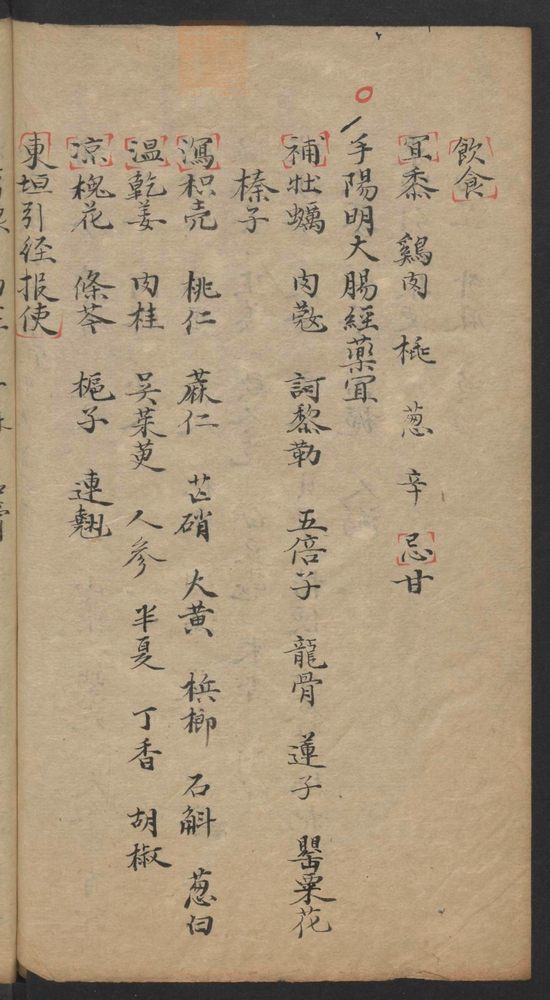 飲食
宜黍 鷄肉 桃 葱 辛 忌甘
手陽明大腸經藥宜
補牡蠣 肉蔲 訶黎勒 五倍子 龍骨 蓮子 罌粟花
榛子
瀉枳壳 桃仁 蔴仁 芒硝 大黄 梹榔 石斛 葱白
温乾姜 肉桂 吴茱萸 人参 半夏 丁香 胡椒
凉槐花 條芩 梔子 連翹
東垣引経报使